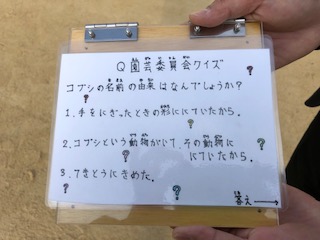 Q園芸委員会クイズ
コブシの名前の由来はなんでしょうか?
1.手をにぎったときの形ににていたから。
2.コブシという動物がいて、その動物に
にていたから。
3.てきとうにきめた。
答え→